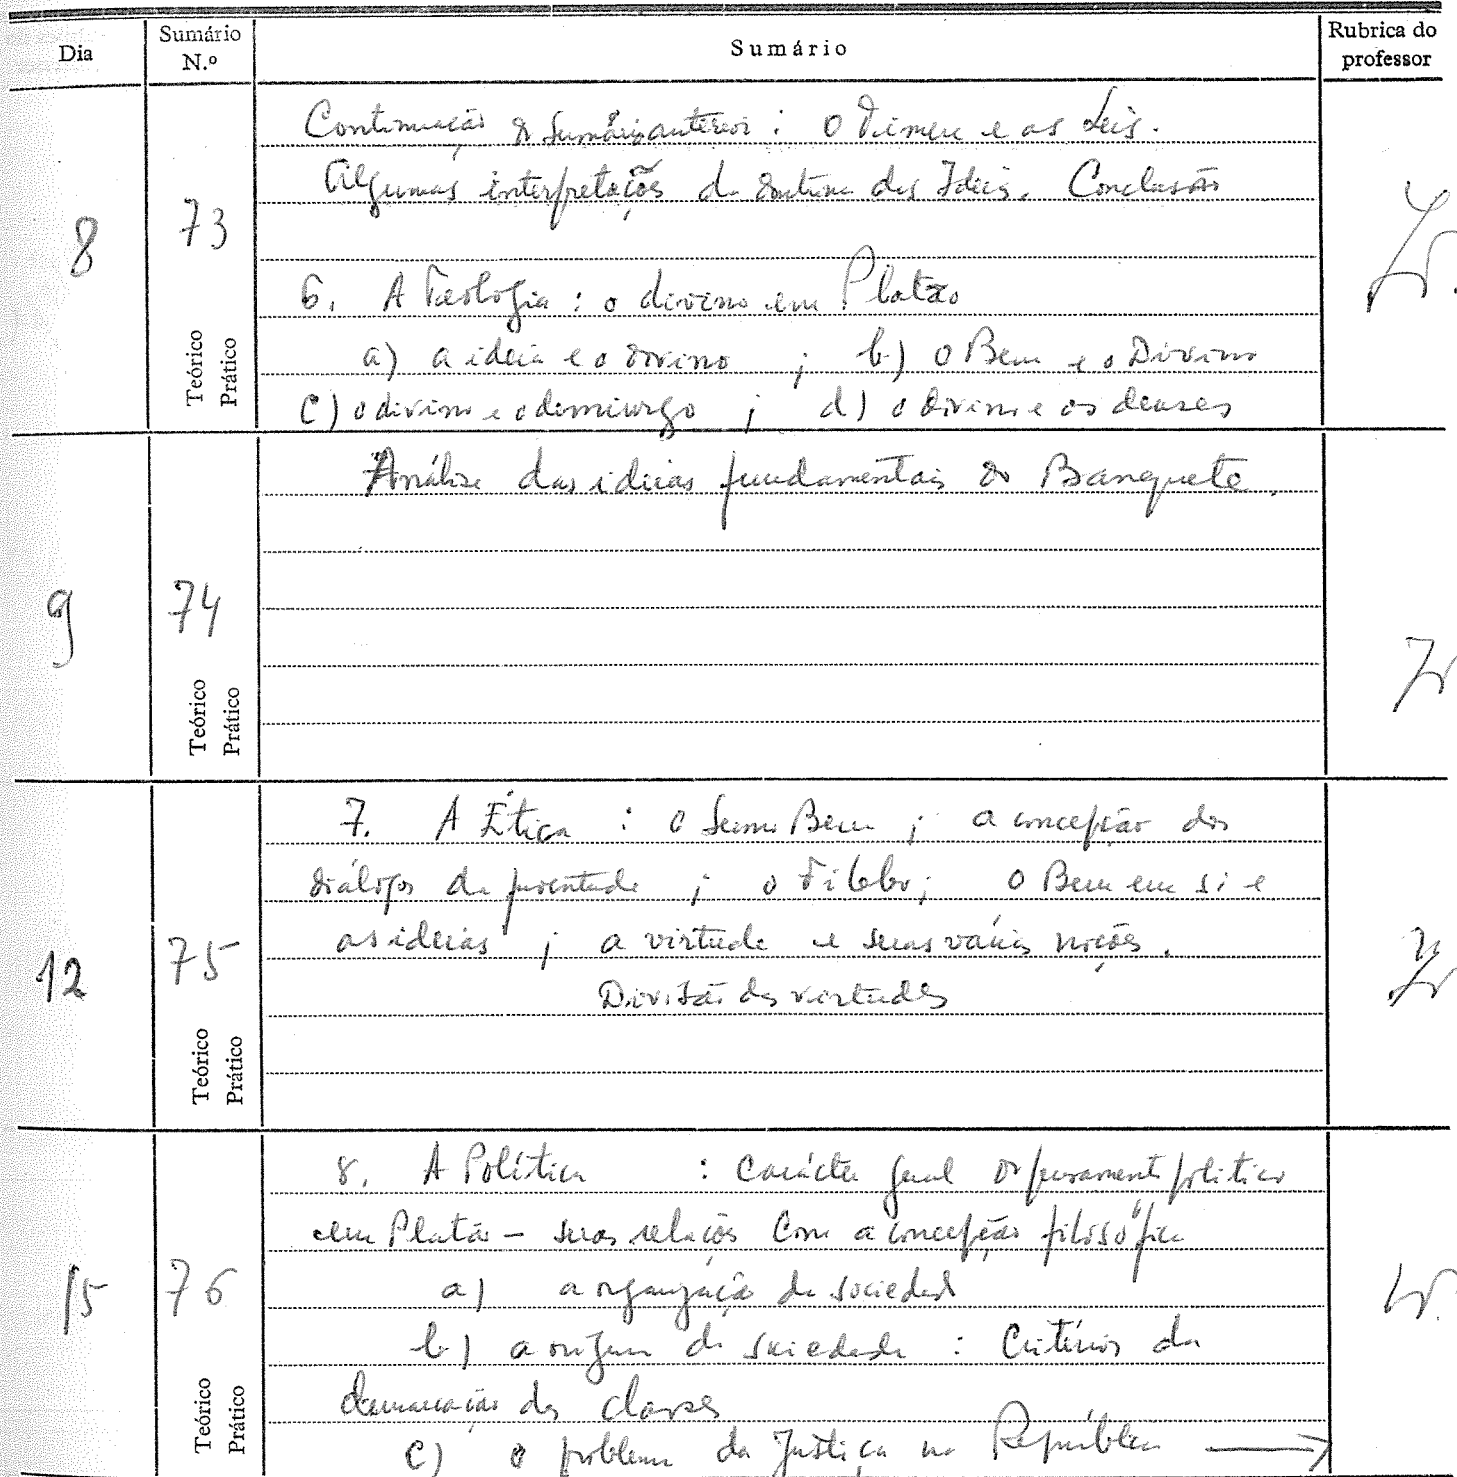 Dia
Sumário N.º
Sumário
Rubrica do professor
8
73
Teórico
Prático
Continuação do Sumário anterior : o Timeu e as Leis.
Algumas interpretações da doutrina das Ideias. Conclusão
6. A Teologia : o divino em Platão
a) a ideia e o divino ; b) o Bem e o Divino
c) o divino e o demiurgo ; d) o divino e os deuses
9
74
Teórico
Prático
Análise das ideias fundamentais do Banquete.
12
75
Teórico
Prático
7. A Ética : o Sumo Bem ; a concepção dos
diálogos da juventude ; o Filebo ; o Bem em si e
as ideias ; a virtude e suas várias noções.
Divisão das virtudes
15
76
Teórico
Prático
8. A Política : Carácter geral do pensamento político
em Platão – suas relações com a concepção filosófica
a) a organização da sociedade
b) a origem da sociedade : Critérios da
demarcação das classes
c) o problema da Justiça na República →